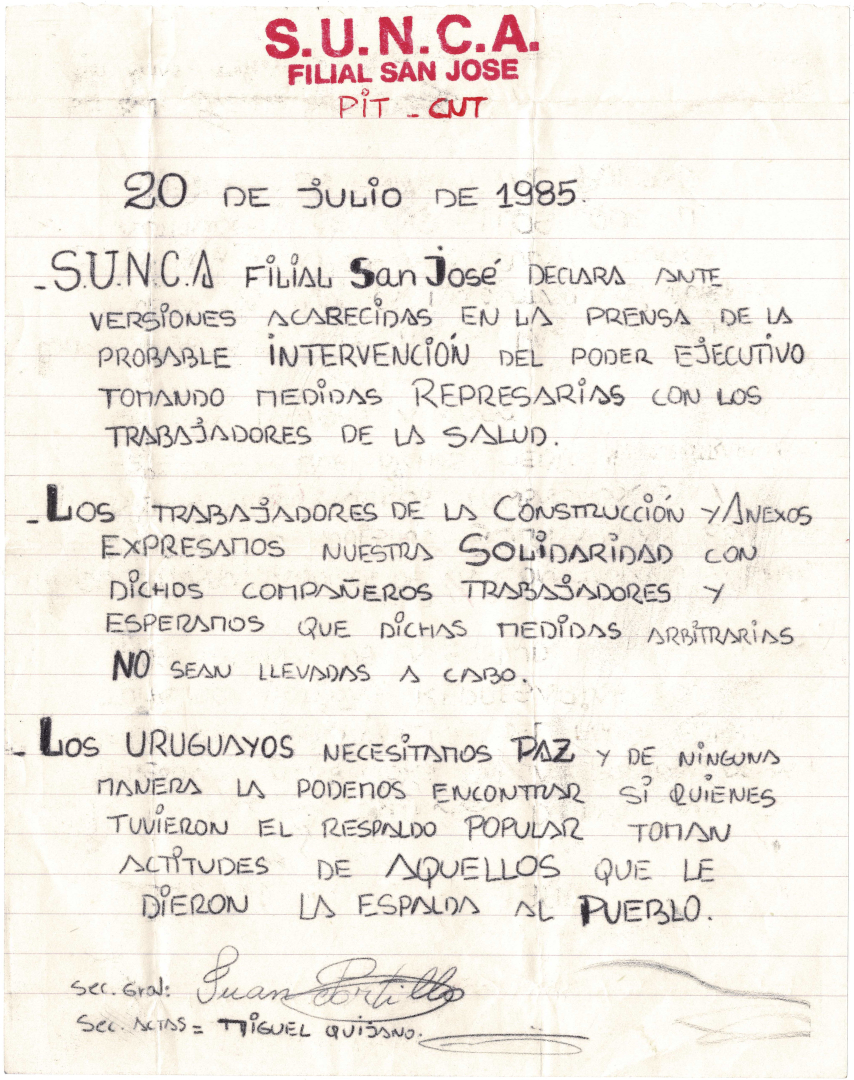 S.U.N.C.A.
FILIAL SAN JOSE
PIT - CNT
20 DE JULIO DE 1985.
- S.U.N.C.A FILIAL San José DECLARA ANTE
VERSIONES ACABECIDAS EN LA PRENSA DE LA
PROBABLE INTERVENCIÓN DEL PODER EJECUTIVO
TOMANDO MEDIDAS REPRESARIAS CON LOS
TRABAJADORES DE LA SALUD.
- LOS TRABAJADORES DE LA CONSTRUCCIÓN Y ANEXOS
EXPRESAMOS NUESTRA SOLIDARIDAD CON
DICHOS COMPAÑEROS TRABAJADORES Y
ESPERAMOS QUE DICHAS MEDIDAS ARBITRARIAS
NO SEAN LLEVADAS A CABO.
- LOS URUGUAYOS NECESITAMOS PAZ Y DE NINGUNA
MANERA LA PODEMOS ENCONTRAR SI QUIENES
TUVIERON EL RESPALDO POPULAR TOMAN
ACTITUDES DE AQUELLOS QUE LE
DIERON LA ESPALDA AL PUEBLO.
Sec. Gral: Juan Portillo
Sec. ACTAS = MIGUEL QUIJANO.